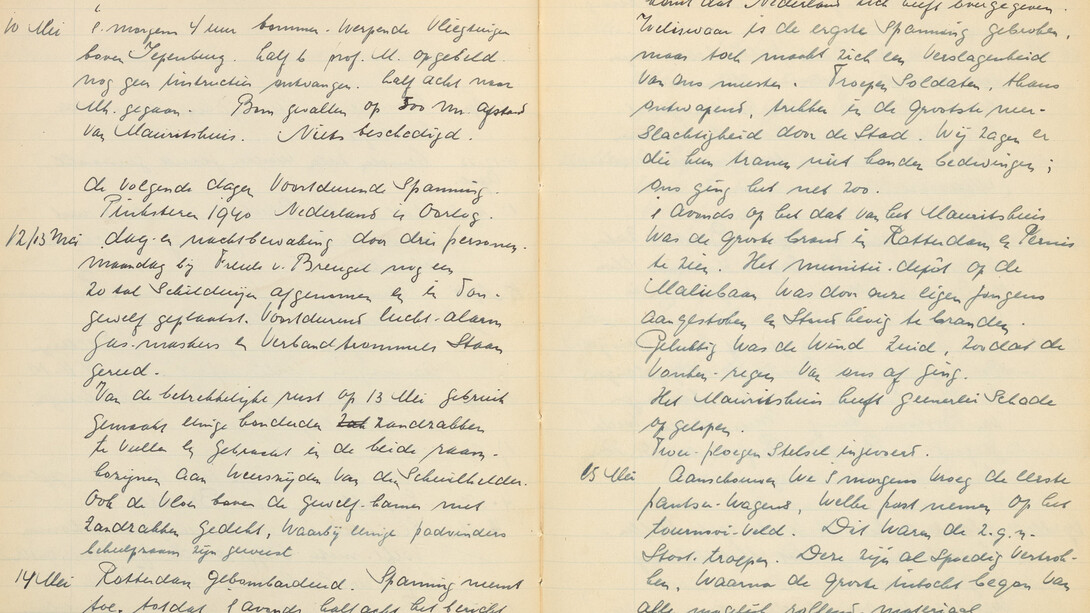 10 Mei 's morgens 4 uur bommen-werpende Vliegtuigen
boven IJpenburg. half 6 prof. M. opgebeld
nog geen instructies ontvangen. half acht naar
Mh. gegaan. Bom gevallen op 500 m. afstand
van Mauritshuis. Niets beschadigd.
de volgende dagen voortdurend Spanning.
Pinksteren 1940 Nederland in Oorlog.
12/13 Mei dag- en nachtbewaking door drie personen.
maandag bij Freule v. Brengel nog een
20 tal Schilderijen afgenomen en in
gewelf geplaatst. Voortdurend lucht-alarm
gas-maskers en Verbandtrommels Staan
gereed.
Van de betrekkelijke rust op 13 Mei gebruik
gemaakt eenige honderden zandzakken
te vullen en gebracht in de beide raam-
kozijnen aan weerszijden van den Schuilkelder.
Ook de vloer boven de gewelf-kamer met
zandzakken gedekt, waarbij eenige padvinders
behulpzaam zijn geweest
14 Mei Rotterdam gebombardeerd. Spanning neemt
toe, totdat 's avonds half acht het bericht
komt dat Nederland zich heeft overgegeven.
Weliswaar is de ergste Spanning gebroken,
maar toch maakt zich een verslagenheid
van ons meester. Troepen Soldaten, thans
ontwapend, trekken in de grootste neer-
slachtigheid door de Stad. Wij zagen er
die hun tranen niet konden bedwingen;
ons ging het net zoo.
's Avonds op het dak van het Mauritshuis
was de groote brand in Rotterdam en Pernis
te zien. Het munitie-depôt op de
Maliebaan was door onze eigen jongens
aangestoken en Stond hevig te branden.
Gelukkig was de wind Zuid, zoodat de
vonken-regen van ons af ging.
Het Mauritshuis heeft geenerlei Schade
opgelopen.
ploegen Stelsel ingevoerd.
15 Mei Aanschouwen we 's morgens vroeg de eerste
pantser-wagens, welke post nemen op het
tournooi-veld. Dit waren de z.g.n.
Stoot-troepen. Deze zijn al Spoedig vertrok-
ken, waarna de groote intocht begon van
alle mogelijk rollend materiaal